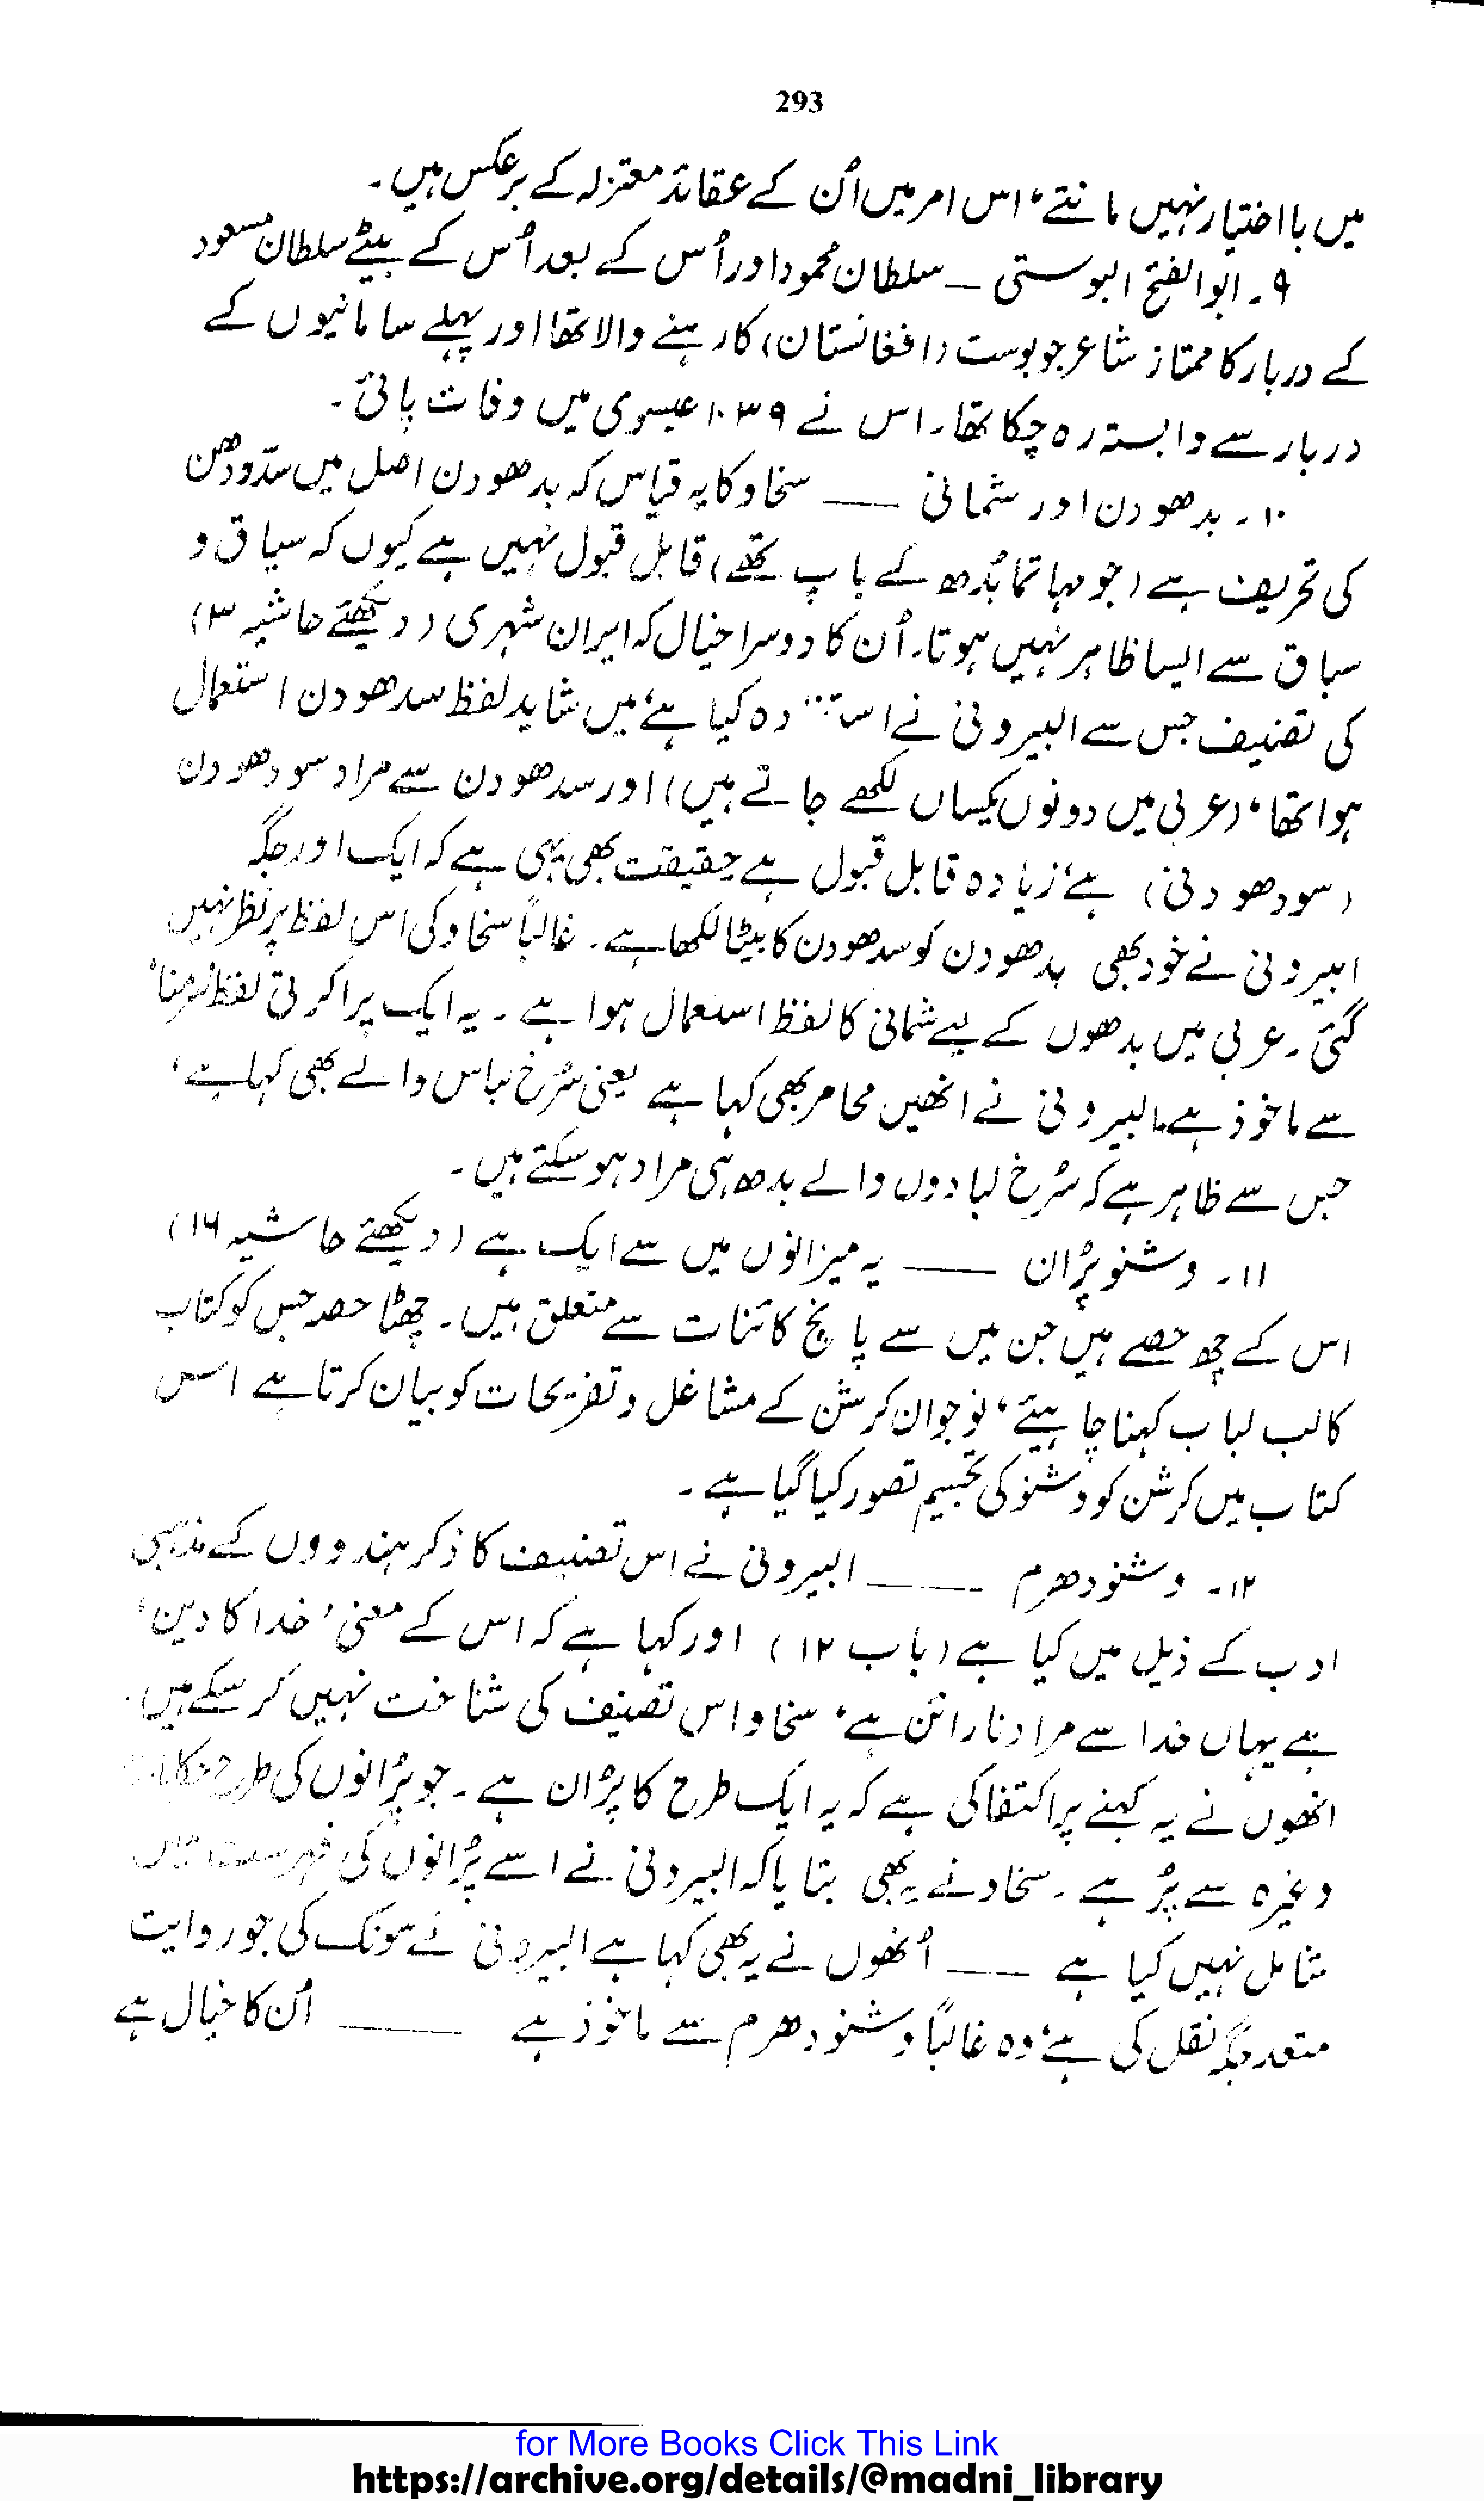 293
میں با اختیار نہیں مانتے، اس امر میں اُن کے عقائد معتزلہ کے برعکس ہیں۔
۹۔ ابوالفتح البوستی — سلطان محمود اور اُس کے بعد اُس کے بیٹے سلطان مسعود
کے دربار کا ممتاز شاعر جو بوست (افغانستان) کا رہنے والا تھا اور پہلے سامانیوں کے
دربار سے وابستہ رہ چکا تھا۔ اس نے ۱۰۳۹ عیسوی میں وفات پائی۔
۱۰۔ بدھودن اور شمانی — سخاو کا یہ قیاس کہ بدھودن اصل میں سدّودھن
کی تحریف ہے (جو مہاتما بُدھ کے باپ تھے) قابل قبول نہیں ہے کیوں کہ سیاق و
سباق سے ایسا ظاہر نہیں ہوتا۔ اُن کا دوسرا خیال کہ ایران شہری (دیکھئے حاشیہ ۳)
کی تصنیف جس سے البیرونی نے دہ کیا ہے، میں شاید لفظ سدھودن استعمال
ہوا تھا، (عربی میں دونوں یکساں لکھے جاتے ہیں) اور سدھودن سے مراد سودھودن
(سودھودنی) ہے، زیادہ قابل قبول ہے حقیقت بھی یہی ہے کہ ایک اور جگہ
ابیرونی نے خود بھی بدھودن کو سدھودن کا بیٹا لکھا ہے۔ غالباً سخاو کی اس لفظ پر نظر نہیں
گئی۔ عربی میں بدھوں کے لیے شمانی کا لفظ استعمال ہوا ہے۔ یہ ایک پراکرتی لفظ
سے ماخوذ ہے۔ البیرونی نے انھیں محامر بھی کہا ہے یعنی سُرخ لباس والے بھی کہا ہے،
جس سے ظاہر ہے کہ سُرخ لبادوں والے بدھ ہی مراد ہو سکتے ہیں۔
۱۱۔ وشنو پُران — یہ میزانوں میں سے ایک ہے (دیکھئے حاشیہ ۱۶)
اس کے چھ حصے ہیں جن میں سے پانچ کائنات سے متعلق ہیں۔ چھٹا حصہ جس کو کتاب
کا لب لباب کہنا چاہیئے، نوجوان کرشن کے مشاغل و تفریحات کو بیان کرتا ہے اس
کتاب میں کرشن کو وشنو کی تجسیم تصور کیا گیا ہے۔
۱۲۔ وشنودھرم — البیرونی نے اس تصنیف کا ذکر ہندووں کے مذہبی
ادب کے ذیل میں کیا ہے (باب ۱۲) اور کہا ہے کہ اس کے معنی 'خدا کا دین'
ہے یہاں خدا سے مراد نارائن ہے، سخاو اس تصنیف کی شناخت نہیں کر سکے ہیں۔
انھوں نے یہ کہنے پر اکتفا کی ہے کہ یہ ایک طرح کا پُران ہے۔ جو پُرانوں کی طرح
وغیرہ سے پُر ہے۔ سخاو نے یہ بھی بتایا کہ البیرونی نے اسے پُرانوں کی فہرست میں
شامل نہیں کیا ہے — اُنھوں نے یہ بھی کہا ہے البیرونی نے سونک کی جو روایت
متعدد جگہ نقل کی ہے، وہ غالباً وشنو دھرم سے ماخوذ ہے — اُن کا خیال ہے
for More Books Click This Link
https://archive.org/details/@madni_library